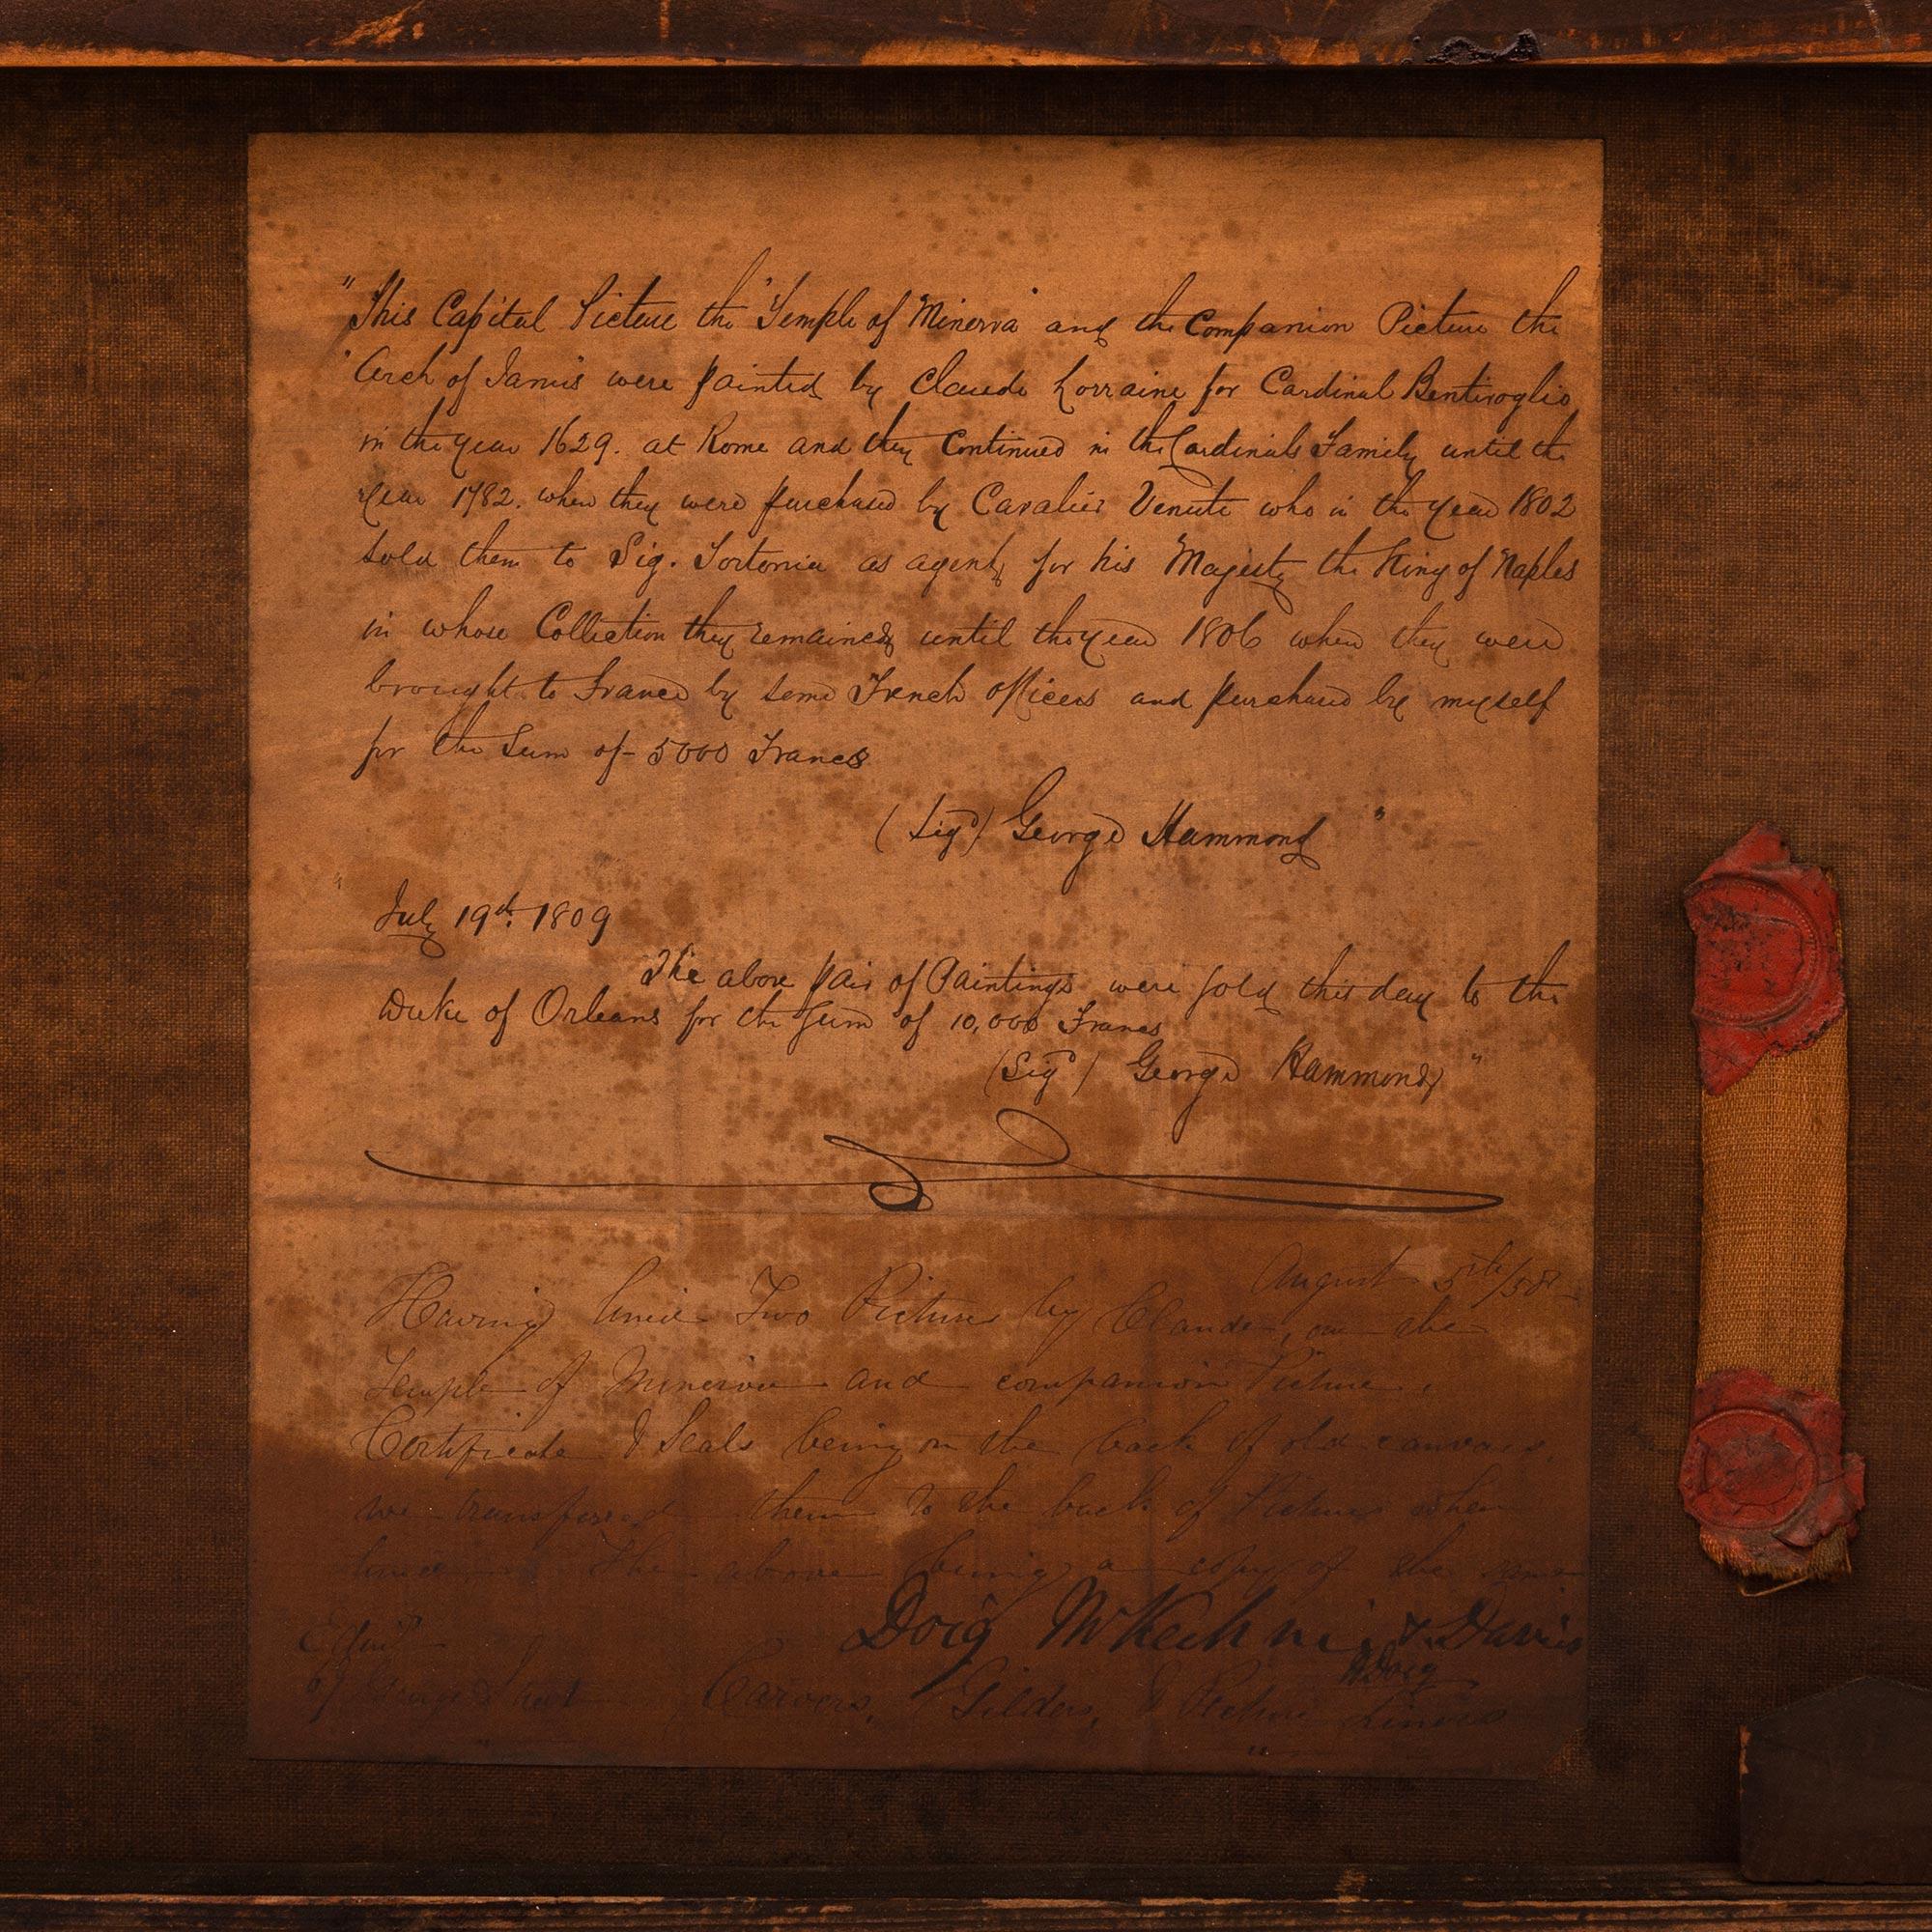 "This Capital Picture the "Temple of Minerva" and the Companion Picture the
"Arch of Janus" were painted by Claude Lorraine for Cardinal Bentivoglio
in the year 1629. at Rome and they Continued in the Cardinals Family until the
year 1782. when they were purchased by Cavalier Venuti who in the year 1802
sold them to Sig. Tortonia as agent for his Majesty the King of Naples
in whose Collection they remained until the year 1806 when they were
brought to France by some French officers and purchased by myself
for the Sum of 5000 Francs
(Sigd) George Hammond "
" July 19th. 1809
The above pair of Paintings were sold this day to the
Duke of Orleans for the Sum of 10,000 Francs
(Sigd) George Hammond "
August 5th/58
Having lined Two Pictures by Claude, one the
Temple of Minerva and companion Picture,
Certificate & Seals being on the back of old canvass,
we transfered them to the back of Pictures when
lined, The above being a copy of the same
Doig McKechnie & Davies
Edinr
Doig
George Street Carvers, Gilders, & Picture Liners